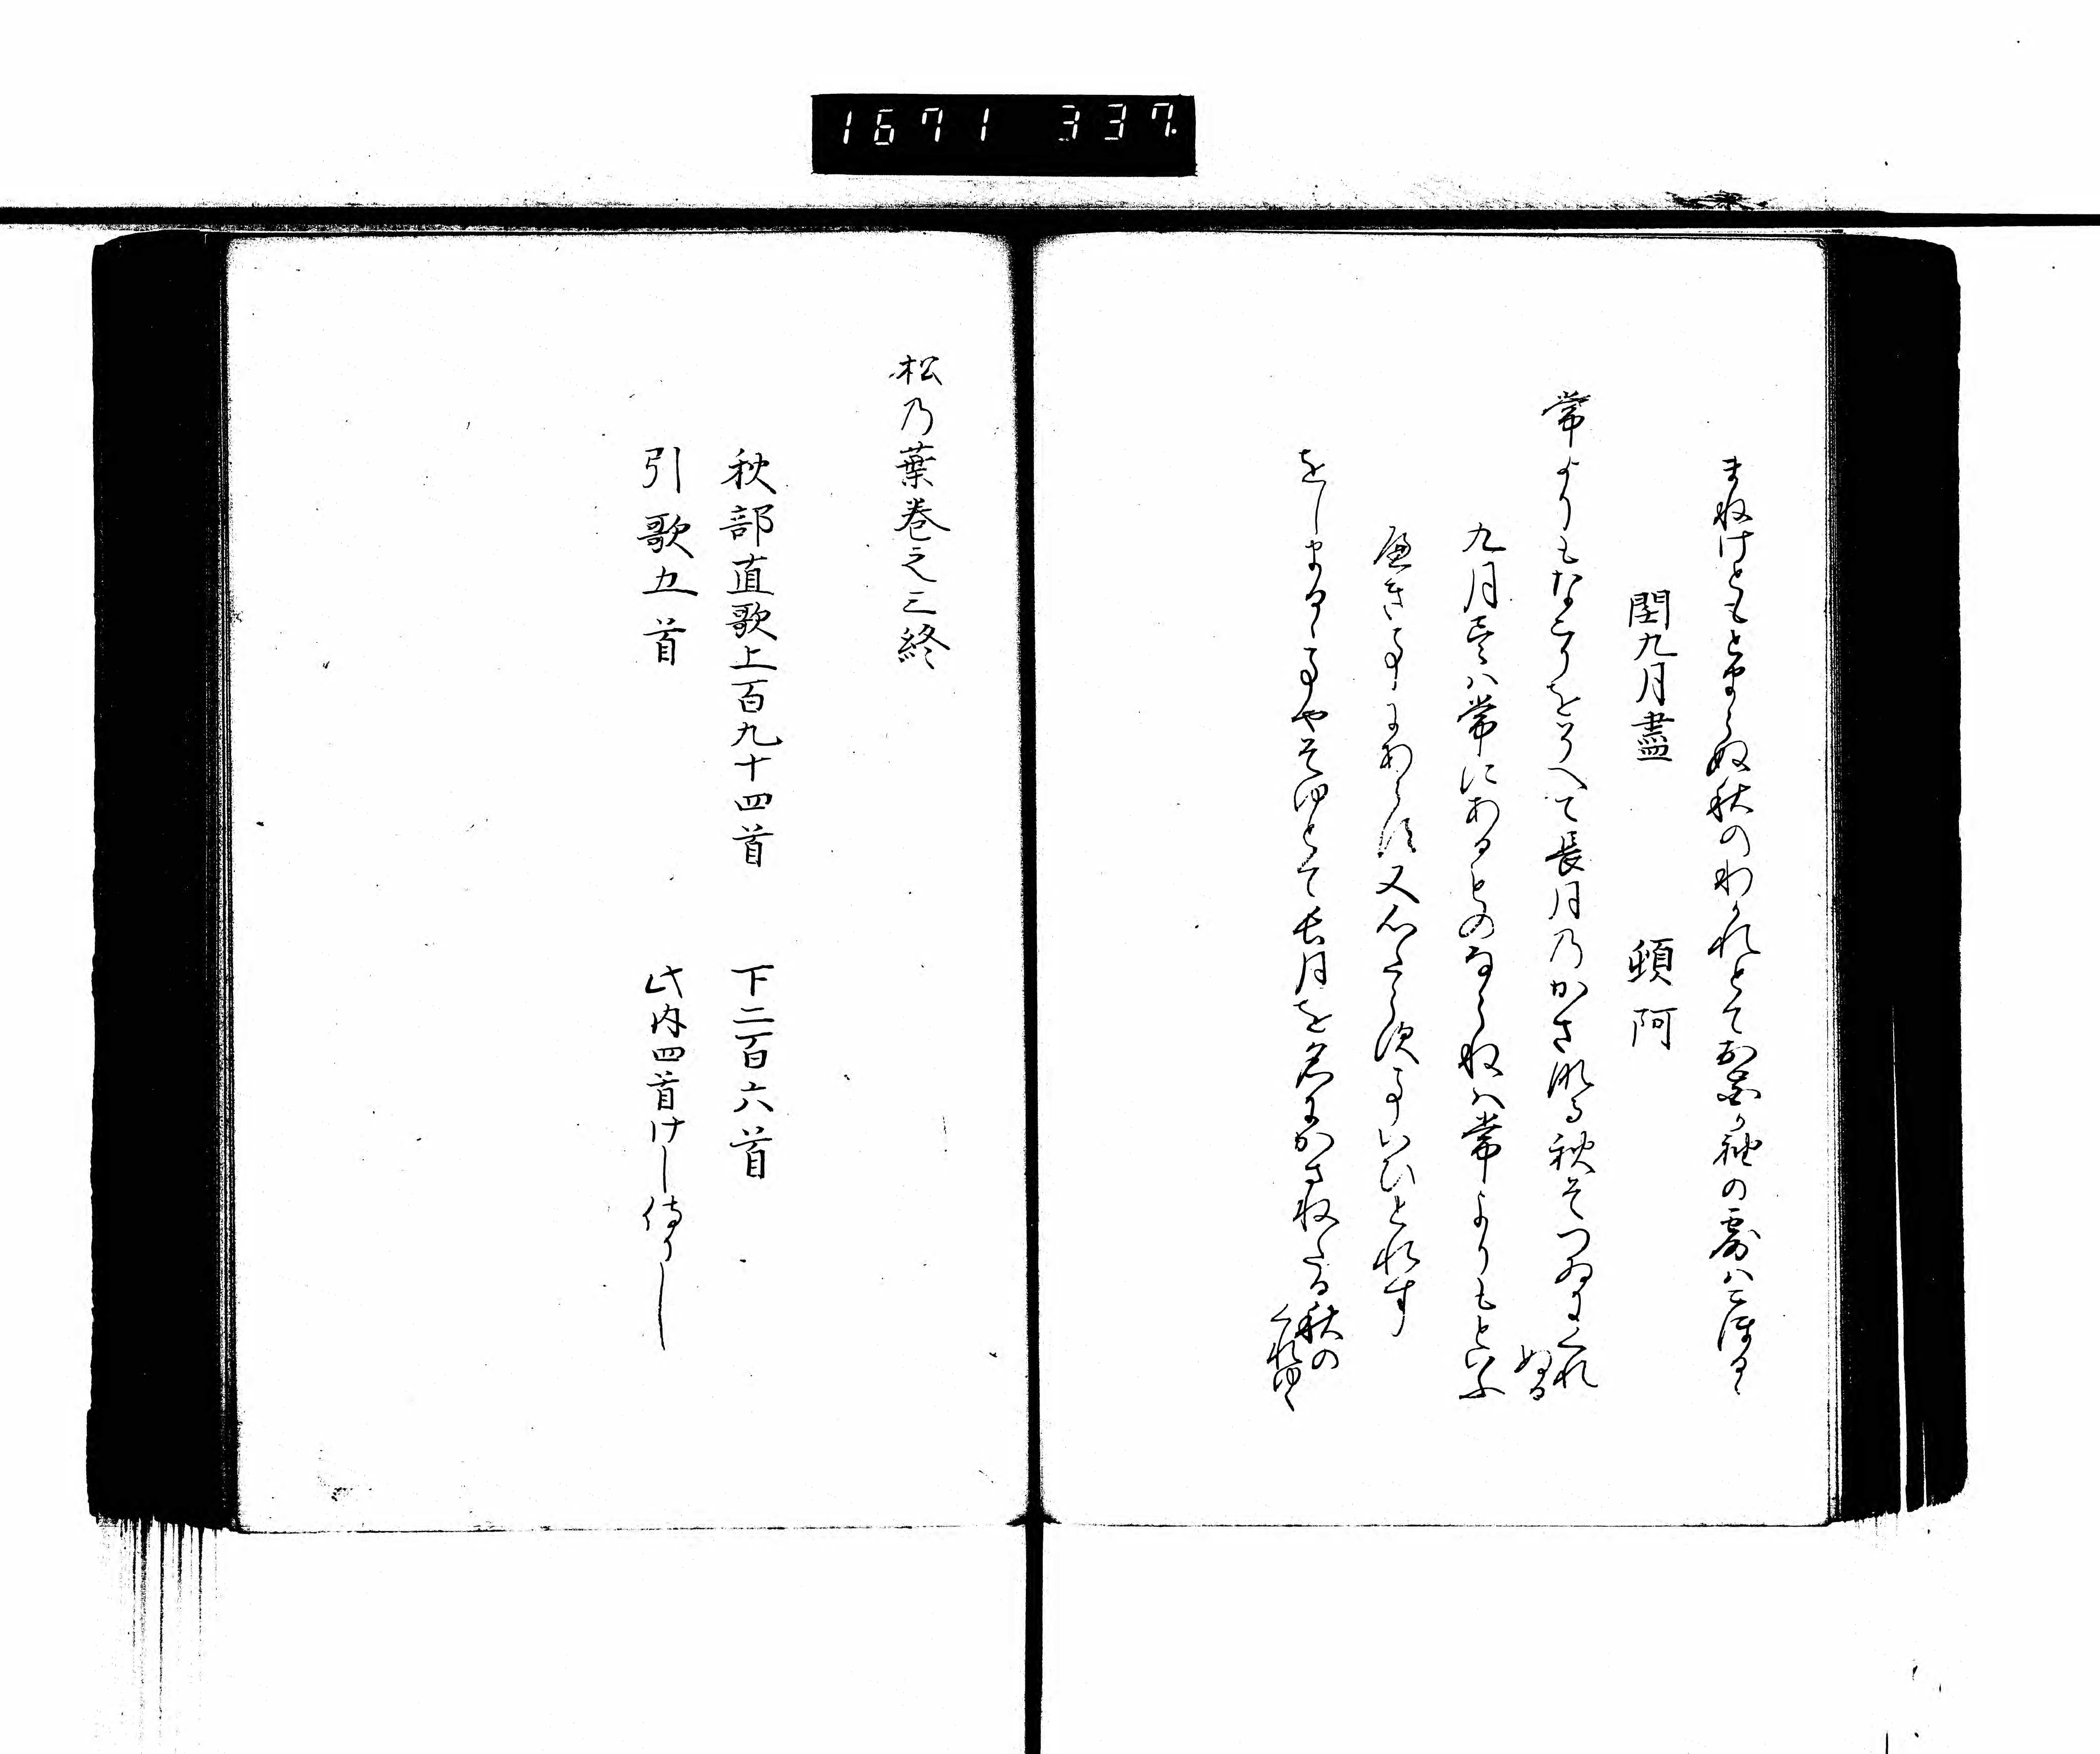 1671 337
まねけともとまらぬ秋のわかれとてお花か袖の露はこほるゝ
閏九月盡 頓阿
常よりもなこりをそへて長月乃かさなる秋そつゐにくれぬる
九月尽は常にあるものならねは常よりもといふ
へきことにあらす又心たらす事いひとれす
をしまるゝ事やそゆとて長月を名にかさねたる秋のくれゆく
松乃葉巻之三終
秋部直歌上百九十四首 下二百六首
引歌五首 此内四首けし侍りし